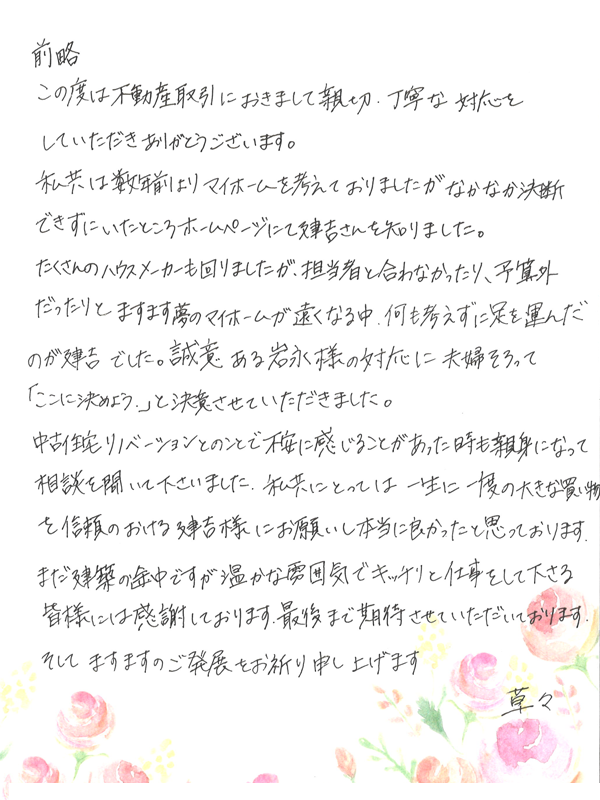 前略
この度は不動産取引におきまして親切、丁寧な対応を
していただきありがとうございます。
私共は数年前よりマイホームを考えておりましたがなかなか決断
できずにいたところホームページにて建吉さんを知りました。
たくさんのハウスメーカーも回りましたが、担当者と合わなかったり、予算外
だったりと ますます夢のマイホームが遠くなる中、何も考えずに足を運んだ
のが建吉でした。誠意ある岩永様の対応に夫婦そろって
「ここに決めよう。」と決意させていただきました。
中古住宅リノベーションとのことで不安に感じることがあった時も親身になって
相談を聞いて下さいました。私共にとっては一生に一度の大きな買い物
を信頼のおける建吉様にお願いし本当に良かったと思っております。
まだ建築の途中ですが温かな雰囲気でキッチリと仕事をして下さる
皆様には感謝しております。最後まで期待させていただいております。
そして ますますのご発展をお祈り申し上げます
草々